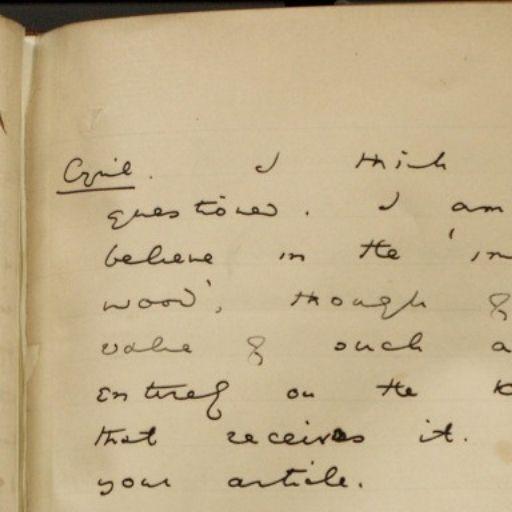 Cyril. I think
questioned. I am
believe in the 'im
wood', though of
value of such a
entirely on the
that receives it.
your article.